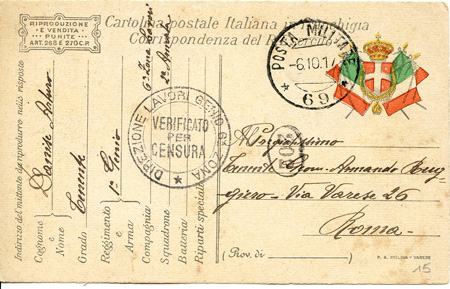 RIPRODUZIONE
E VENDITA
PUNITE
ART. 268 E 270 C.P.
Cartolina postale Italiana in franchigia
Corrispondenza del R. Esercito
POSTA MILITARE
-6.10.17
69
DIREZIONE LAVORI GENIO 6ª ZONA
VERIFICATO
PER
CENSURA
Indirizzo del mittente da riprodurre nella risposta
Cognome e Nome
Grado Tenente
Reggimento e Arma 1º Genio
Compagnia
Squadrone
Batteria
Riparti speciali
6ª Zona Lavori
2ª Armata
Tenente Armando Rug-
giero - Via Varese 26
Roma
(Prov. di )
VARESE
15